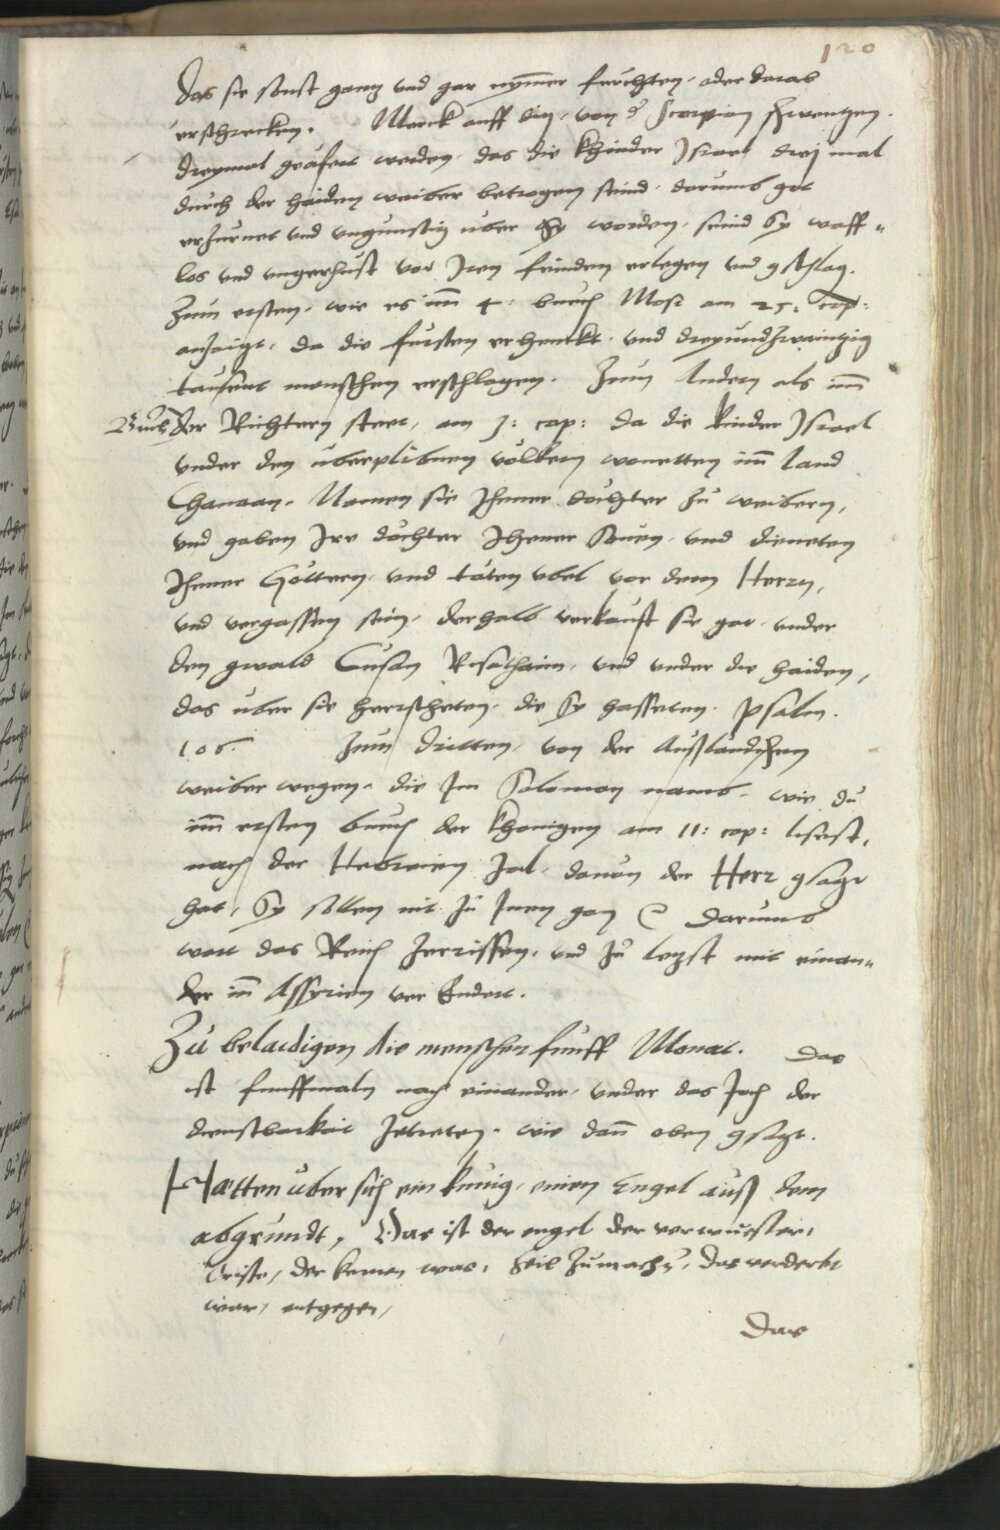 120
das sie sonst gantz vnd gar nymmer forchten, oder darab
erschrecken. Merck auff die, von d' Scorpion schwentzen.
dreymal geäfert werden, das die khinder Israel drej mal
durch der haiden weiber betrogen seind, darumb got
erzurnet vnd vngunstig uber sy worden, seind sy waff-
los vnd vngerhust vor Iren feinden erlegen vnd gschlag.
Zum ersten, wie es im 4: buch Mose am 25: cap:
anzaigt, da die fursten erhenckt, vnd dreyundzwaintzig
tausent menschen erschlagen. Zum Andern als im
Buch der Richtern steet, am 3: cap: da die kinder Israel
vnder den uberplibnen völkern wonetten im land
Chanaan. Namen sie Ihener döchter zu weibern,
vnd gaben Ire döchter Ihener Sönen, vnd dieneten
Ihener Göttern, vnd täten vbel vor dem Herrn,
vnd vergassen sein, derhalb verkauft sie got, vnder
den gwald Cusan Rasathaim, vnd vnder die haiden,
das uber sie herrscheten, die sy hasseten. Psalm.
106. Zum dritten, von der Außlandischen
weiber wegen, die Im Salomon namb, wie du
im ersten buch der Khonigen am 11: cap: lisest,
nach der Hebreien Zal, davon der Herr gsagt
hat, Sy sollen nit zu Inen gon &c Darumb
wart das Reich zerrissen, vnd zu letzst mit einan-
der in Assyrien ver Endert.
Zu belaidigen die menschen funff Monat. Das
ist funffmaln nach einander, vnder das Joch der
dienstbarkait zetreten, wie dann oben gsagt.
Hatten uber sich ein kunig, einen Engel auß dem
abgrundt, Das ist der engel der verwuester,
Cristo, der komen was, heil zumachen, das verderbt
war, entgegen,
Das